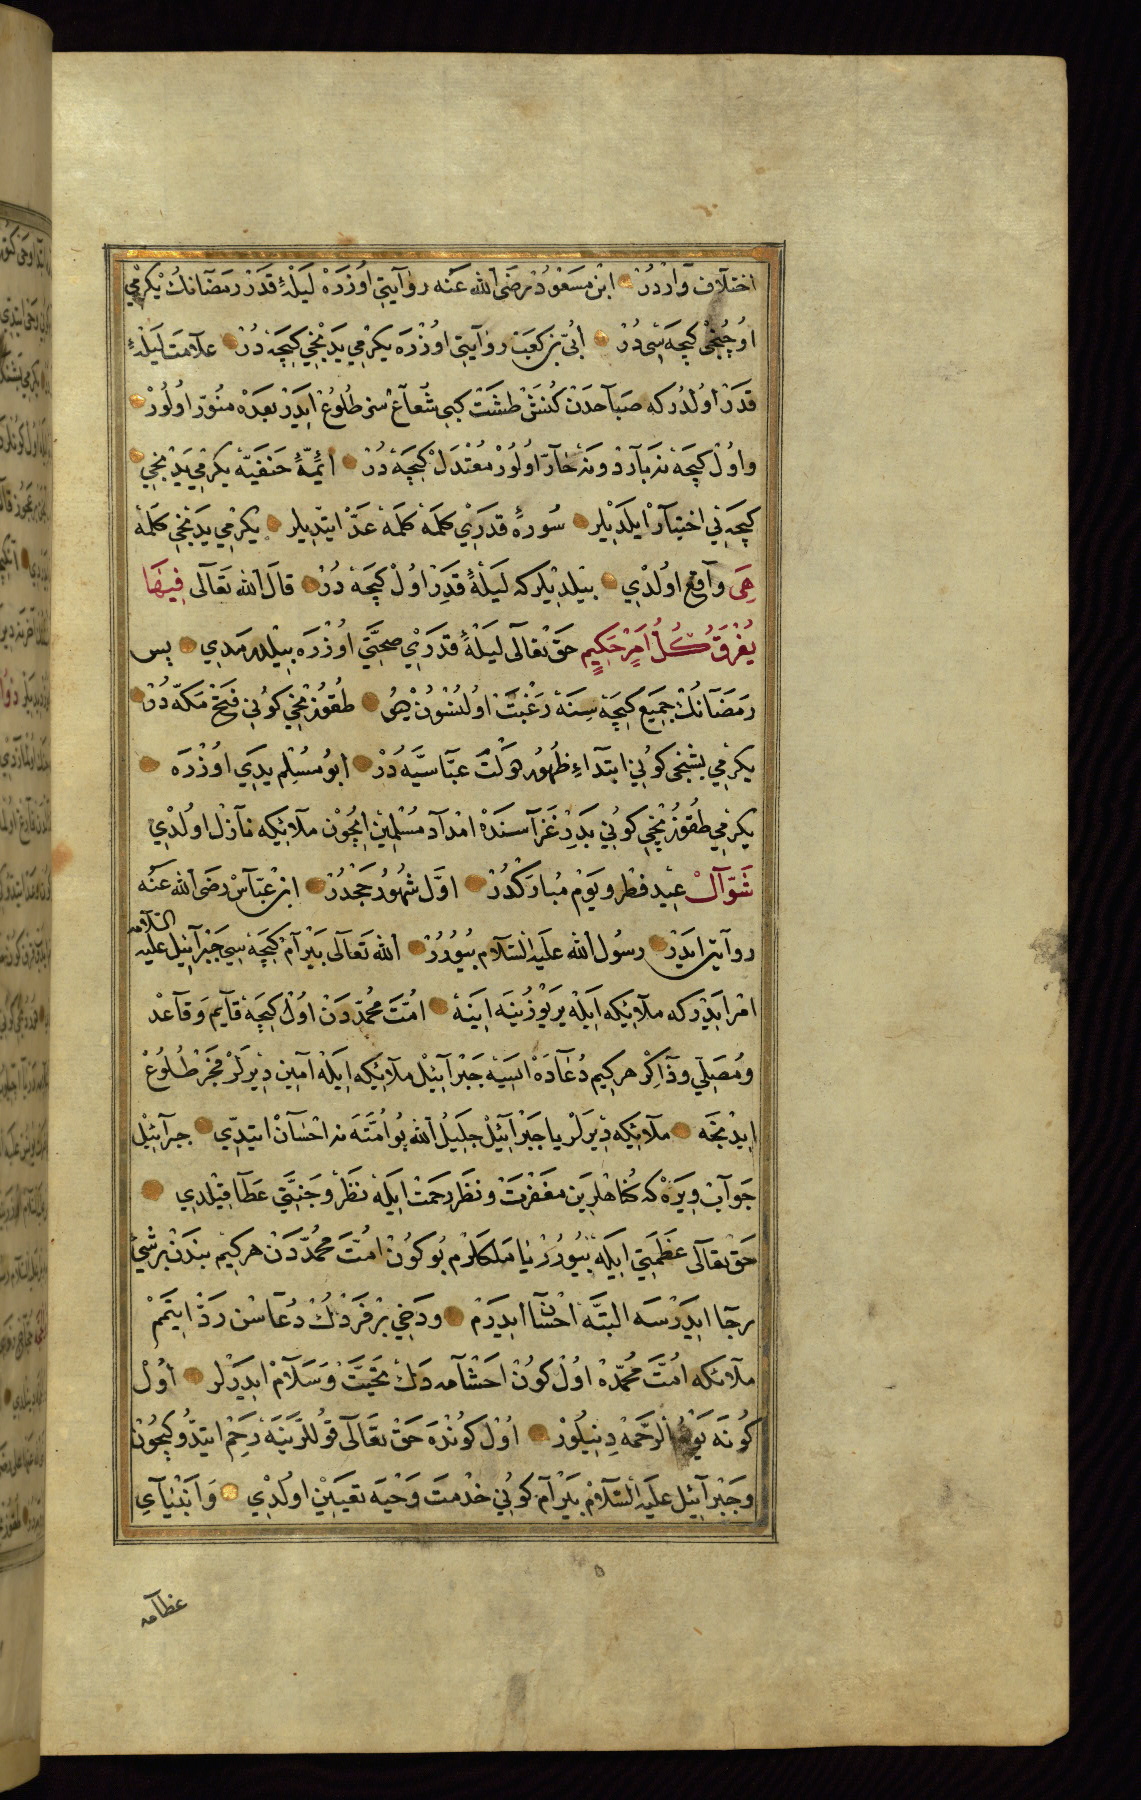 اختلاف واردر ابن مسعود رضى الله عنه روايتى اوزره ليلۀ قدر رمضانك يكرمى
اوچنجى كيجه سى در أبىّ بن كعب روايتى اوزره يكرمى يدنجى كيجه در علامت ليلۀ
قدر اولدر كه صباحدن كنش طشت كبى شعاع سز طلوع ايدر بعده منوّر اولور
و اول كيجه نه بارد و نه حارّ اولور معتدل كيجه در ائمّۀ حنفيّه يكرمى يدنجى
كيجه نى اختيار ايلديلر سورۀ قدرى كلمه كلمه عدّ ايتديلر يكرمى يدنجى كلمه
هى واقع اولدى بيلديلر كه ليلۀ قدر اول كيجه در قال الله تعالى فيها
يفرق كلّ امر حكيم حق تعالى ليلۀ قدرى صحتى اوزره بيلدرمدى پس
رمضانك جميع كيجه سنه رغبت اولنسون ديو طقوزنجى كونى فتح مكّه در
يكرمى بشنجى كونى ابتداء ظهور دولت عبّاسيّه در ابو مسلم يدى اوزره
يكرمى طقوزنجى كونى بدر غزاسنده امداد مسلمين ايچون ملائكه نازل اولدى
شوّال عيد فطر و يوم مباركدر اوّل شهور حجدر ابن عبّاس رضى الله عنه
روايت ايدر رسول الله عليه السّلام بيورر الله تعالى بيرام كيجه سى جبرائيل عليه السّلامه
امر ايدر كه ملائكه ايله ير يوزينه اينه امّت محمّددن اول كيجه قايم و قاعد
و مصلّى و ذاكر هركيم دعاده ايسه جبرائيل ملائكه ايله آمين ديرلر فجر طلوع
ايدنجه ملائكه ديرلر يا جبرائيل جليل الله بو امّته نه احسان ايتدى جبرائيل
جواب ويره كه كناهلرين مغفرت و نظر رحمت ايله نظر و جنّتى عطا قيلدى
حق تعالى عظمتى ايله بيورر يا ملكلرم بو كون امّت محمّددن هركيم بندن بر شئ
رجا ايدرسه البتّه احسان ايدرم و دخى بر فردك دعاسن ردّ ايتمم
ملائكه امّت محمّده اول كون احشامه دك تحيّت و سلام ايدرلر اول
كونه يوم الرّحمه دينيلور اول كونده حق تعالى قوللرينه رحم ايتدوكيچون
و جبرائيل عليه السّلام بيرام كونى خدمت وحيه تعيين اولدى و انبياى
عظامه